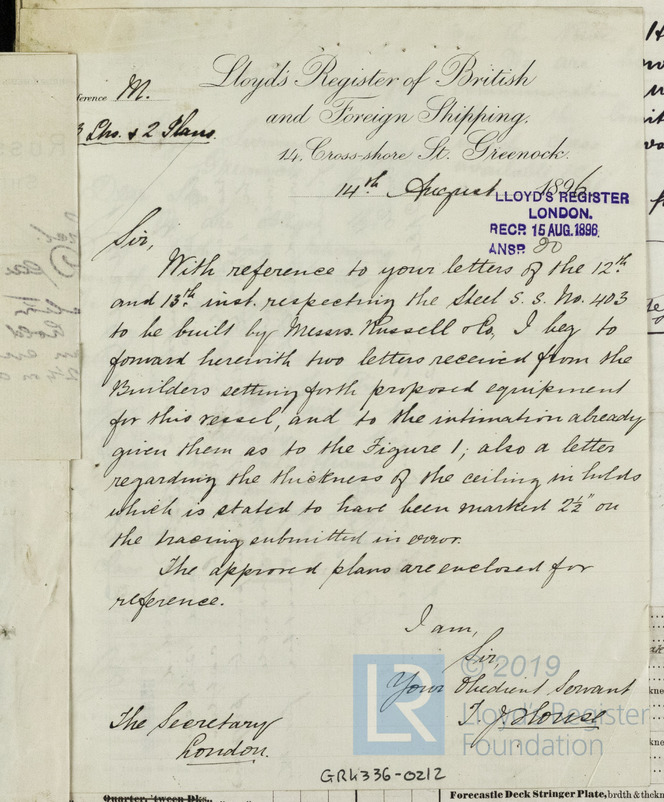 Lloyd's Register of British
and Foreign Shipping.
14, Cross-shore St. Greenock.
ference M.
3 Lhs. & 2 Plans.
14th August 1896
LLOYD'S REGISTER
LONDON.
RECD. 15 AUG. 1896
ANSD. 20
Sir,
With reference to your letters of the 12th
and 13th inst. respecting the Steel S. S. No. 403
to be built by Messrs. Russell & Co, I beg to
forward herewith two letters received from the
Builders setting forth proposed equipment
for this vessel, and to the intimation already
given them as to the Figure 1; also a letter
regarding the thickness of the ceiling in holds
which is stated to have been marked 2½" on
the tracing submitted in error.
The approved plans are enclosed for
reference.
I am,
Sir,
Your Obedient Servant
T J House
The Secretary
London.
LR
© 2019
Lloyd's Register
Foundation
GRk336-0212
Quarter, 'tween Dks.
Forecastle Deck Stringer Plate, brdth & thkn